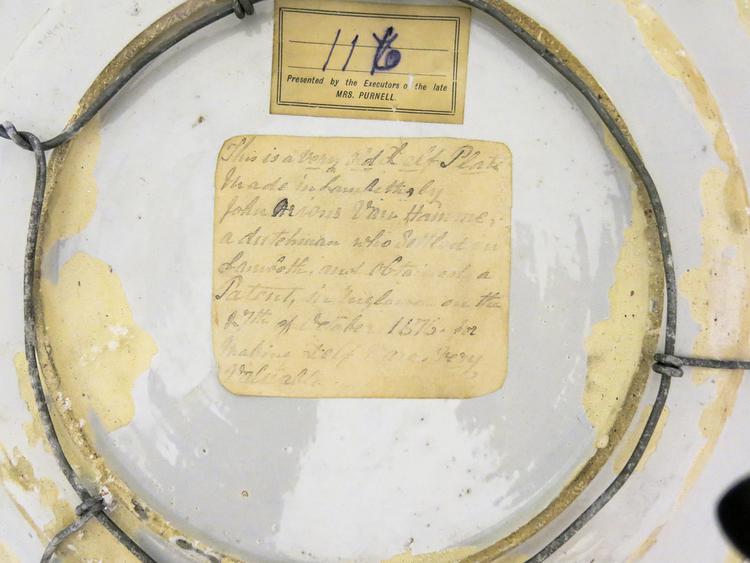 116
Presented by the Executors of the late
MRS. PURNELL.
This is a very old Delf Plate
Made in Lambeth, by
John Arions Van Hamme,
a dutchman who Settled in
Lambeth, and obtained a
Patent, in England on the
27th of October 1676 for
Making Delf Ware, Very
Valuable.